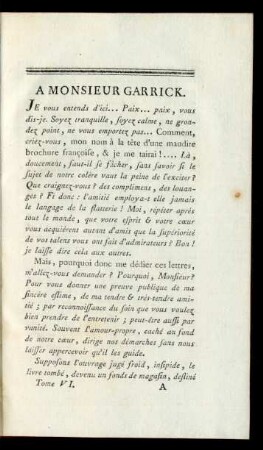 A MONSIEUR GARRICK.
JE vous entends d'ici... Paix... paix, vous
dis-je. Soyez tranquille, soyez calme, ne gron-
dez point, ne vous emportez pas... Comment,
criez-vous, mon nom à la tête d'une maudite
brochure françoise, & je me tairai !.... Là,
doucement, faut-il se fâcher, sans savoir si le
sujet de notre colére vaut la peine de l'exciter ?
Que craignez-vous ? des complimens, des louan-
ges ? Fi donc : l'amitié employa-t-elle jamais
le langage de la flatterie ! Moi, répéter après
tout le monde, que votre esprit & votre cœur
vous acquiérent autant d'amis que la supériorité
de vos talens vous ont fait d'admirateurs ! Bon !
je laisse dire cela aux autres.
Mais, pourquoi donc me dédier ces lettres,
m'allez-vous demander ? Pourquoi, Monsieur ?
Pour vous donner une preuve publique de ma
sincère estime, de ma tendre & très-tendre ami-
tié ; par reconnoissance du soin que vous voulez
bien prendre de l'entretenir ; peut-être aussi par
vanité. Souvent l'amour-propre, caché au fond
de notre cœur, dirige nos démarches sans nous
laisser appercevoir qu'il les guide.
Supposons l'ouvrage jugé froid, insipide, le
livre tombé, devenu un fonds de magasin, destiné
Tome VI. A